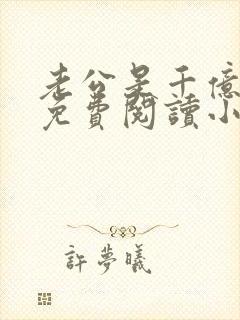 老公是千億
免費閱讀小
許夢曦